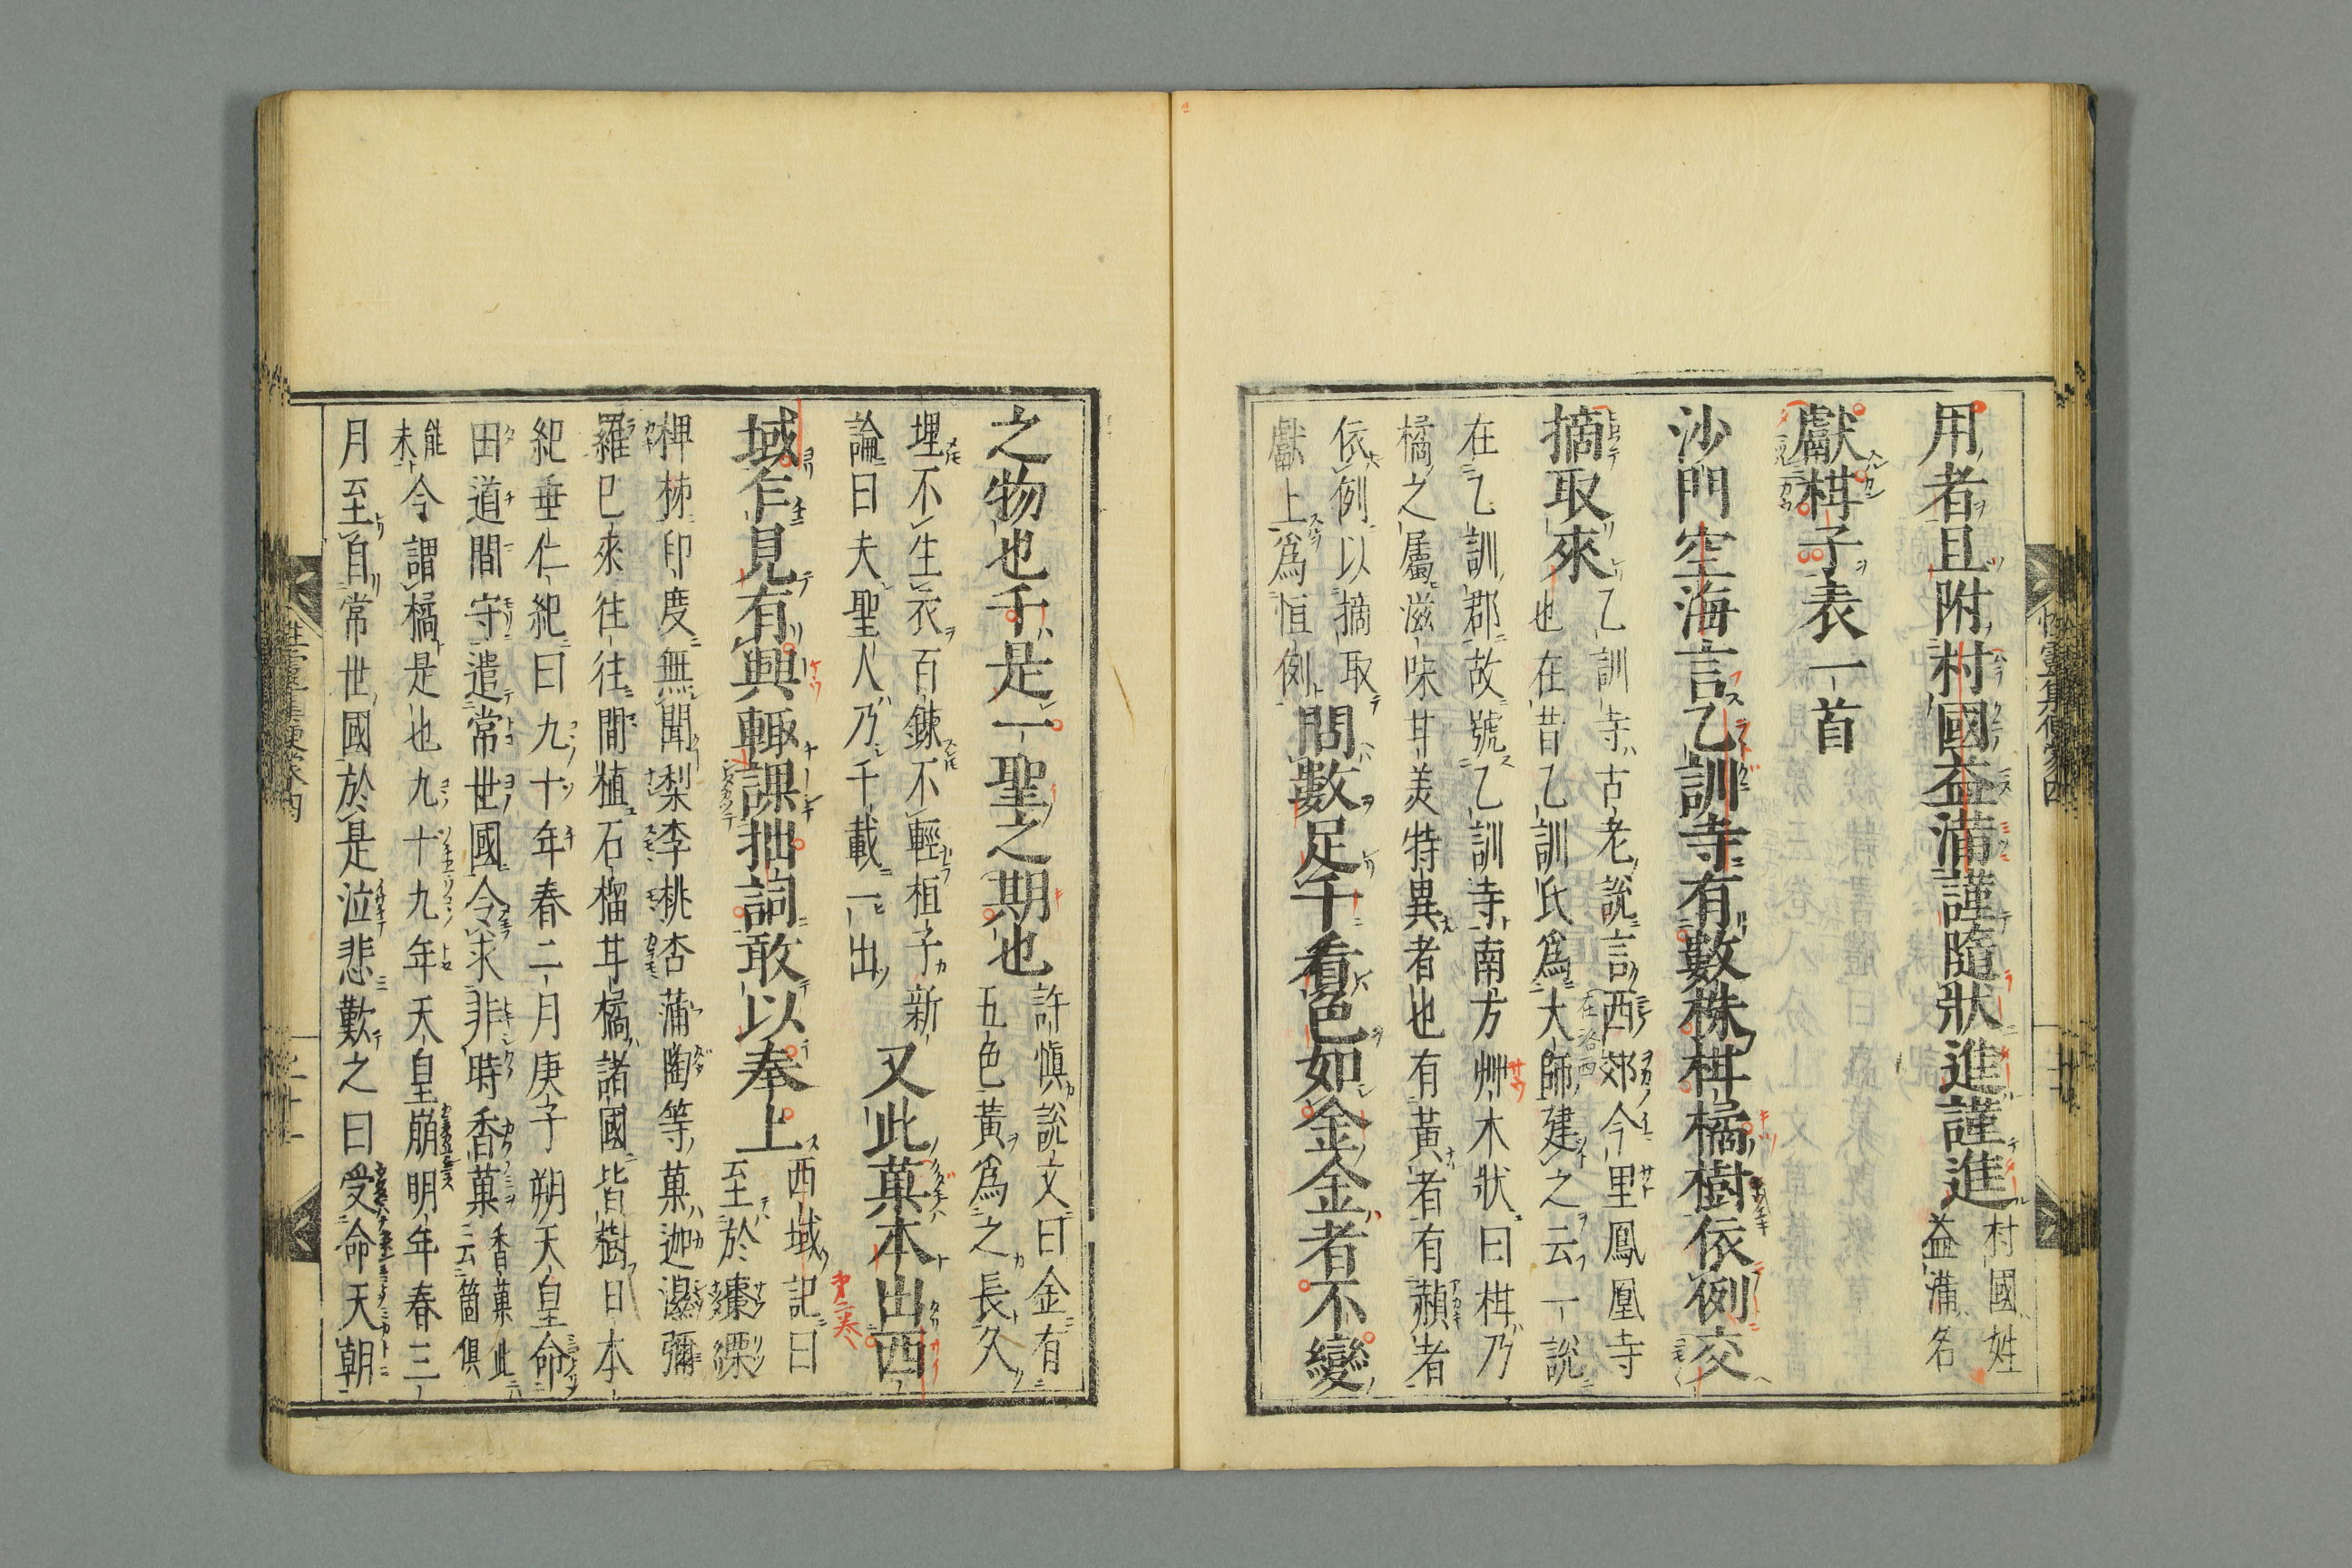 用者且附村國益滿謹隨狀進謹進
村國姓
益滿名
獻柑子表一首
沙門空海言乙訓寺有數株柑橘樹依例交
摘取來
乙訓寺古老說言西郊今里鳳凰寺
也在昔乙訓氏爲大師建之云一說
在乙訓郡故號乙訓寺南方艸木狀曰柑乃
橘之屬滋味甘美特異者也有黃者有赬者
依例以摘取
獻上爲恒例
問數足千看色如金金者不變
之物也千是一聖之期也
許愼說文曰金有
五色黃爲之長久
埋不生衣百鍊不輕桓子新
論曰夫聖人乃千載一出
又此菓本出西
域乍見有興輙課拙詞敢以奉上
西域記曰
至於棗㮚
椑柹印度無聞梨李桃杏蒲陶等菓迦濕彌
羅已來往往間植石榴甘橘諸國皆樹日本
紀垂仁紀曰九十年春二月庚子朔天皇命
田道間守遣常世國令求非時香菓
香菓此
云箇俱
能
未
今謂橘是也九十九年天皇崩明年春三
月至自常世國於是泣悲歎之曰受命天朝